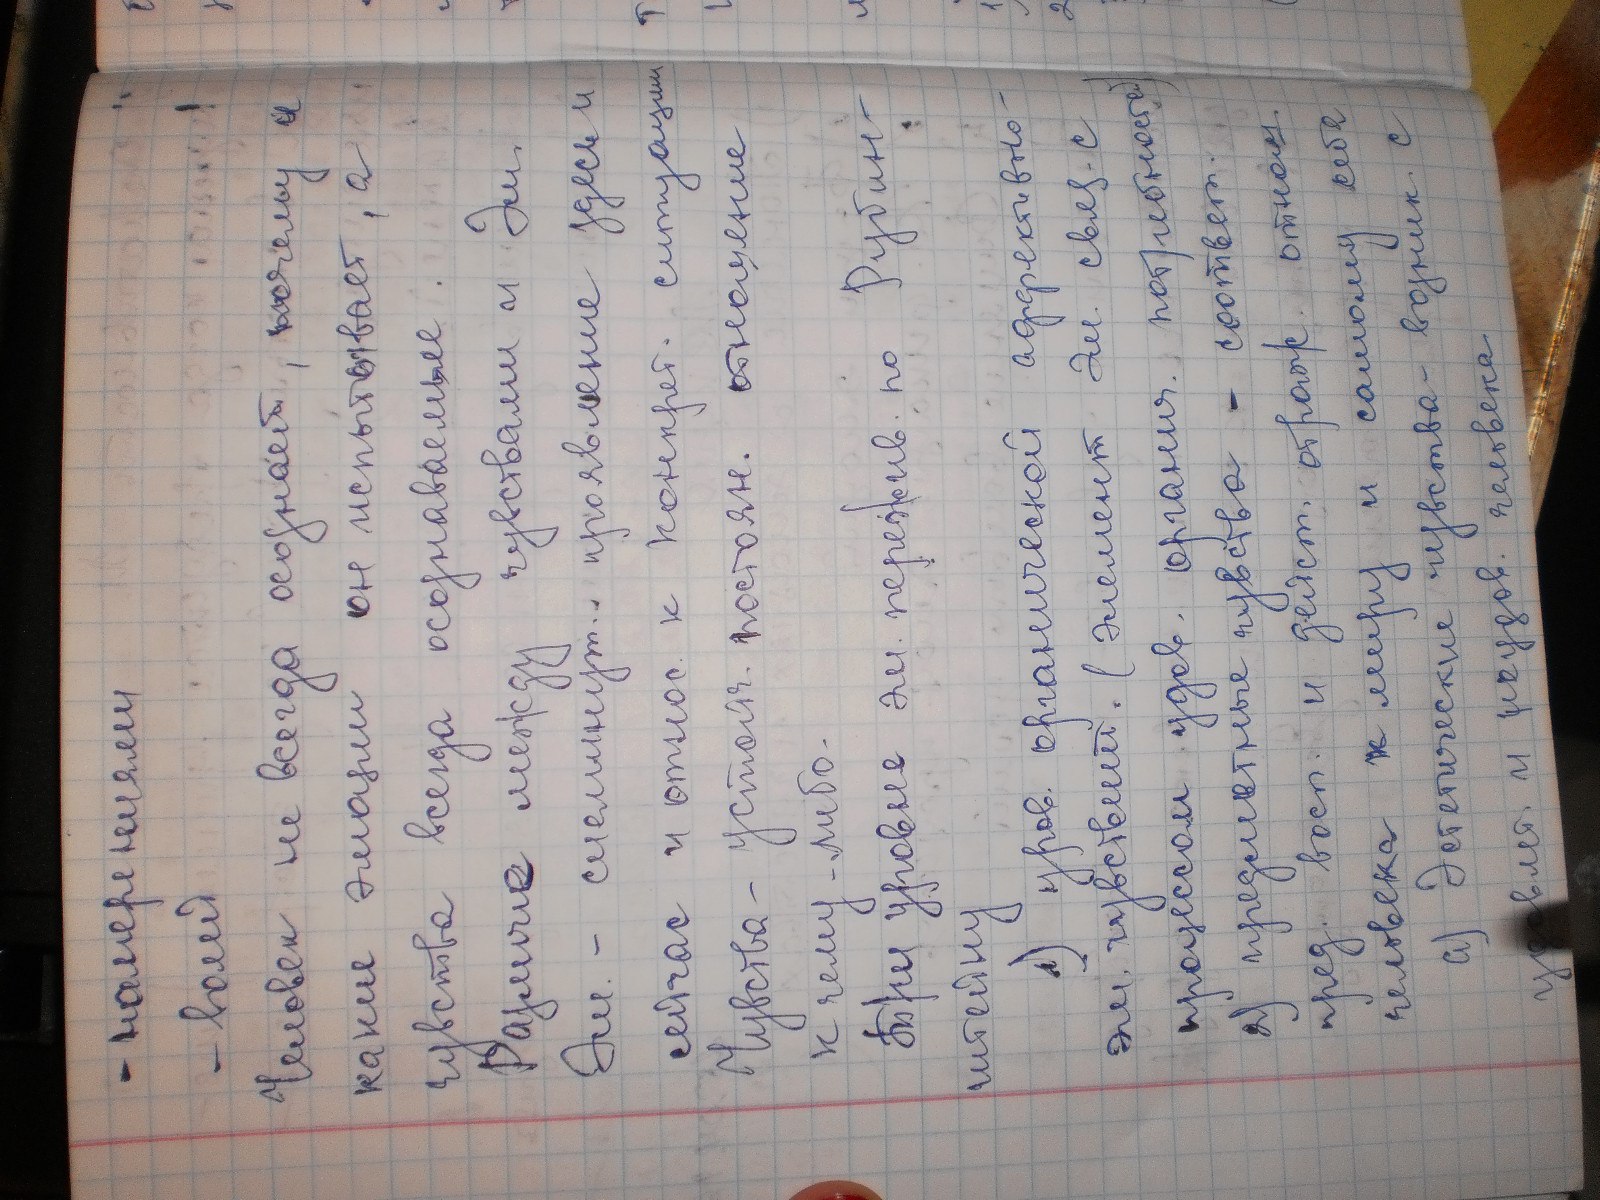 - намерениями
- волей
Человек не всегда осознаёт, почему и
какие эмоции он испытывает, а
чувства всегда осознаваемые.
Различие между чувствами и Эм.
Эм. - сиеминут. проявление здесь и
сейчас и относ. к конкрет. ситуации
Чувства - устойч. постоян. отношение
к чему-либо.
Три уровне эм. пережив. по Рубин-
штейну
1) уров. органической аффективно-
эм. чувствит. (элемент эм. связ. с
процессом удов. оргнич. потребности)
2) предметные чувства - соответ.
пред. восп. и дейст. отраж. отнош.
человека к миру и самому себе
а) Эстетические чувства - возник. с
удовлет. и неудов. человека